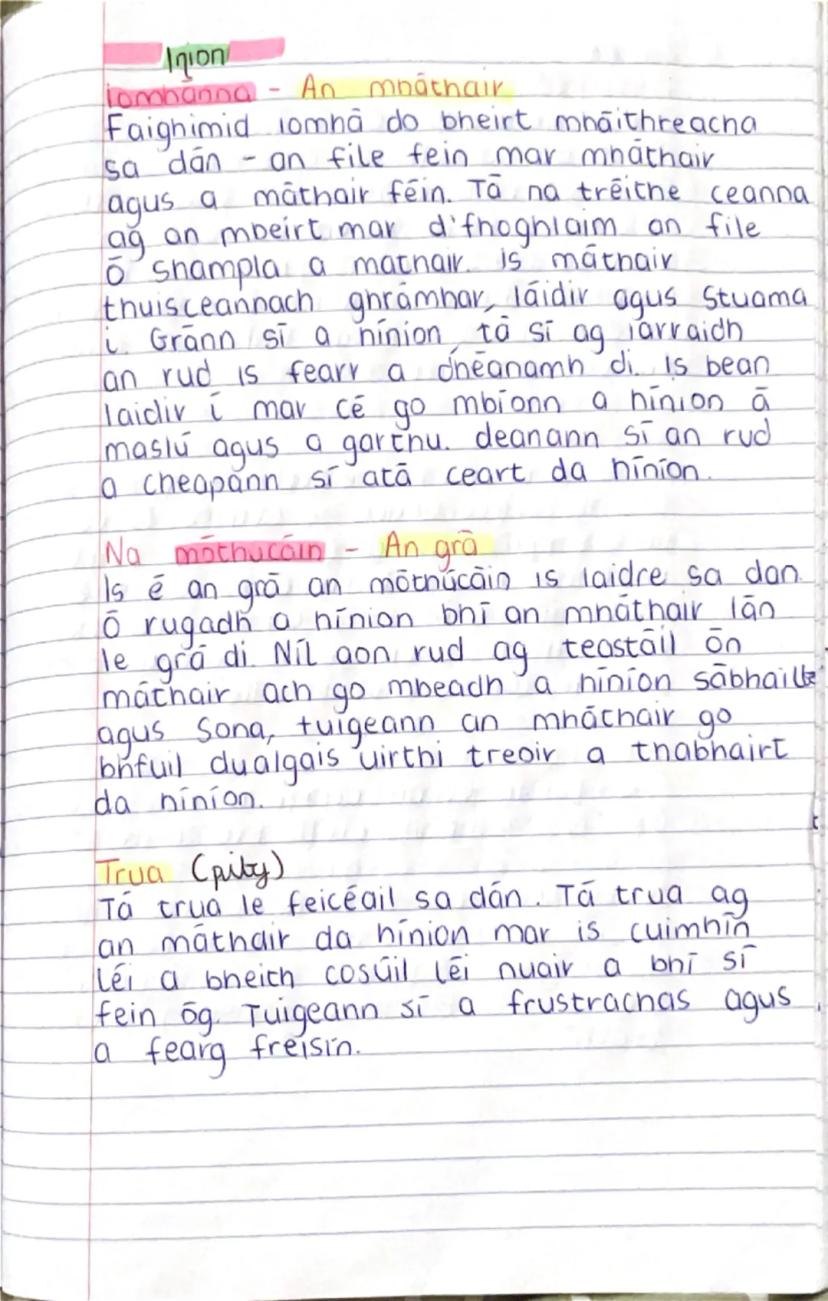 Iníon
íomhánna - An mháthair
Faighimid íomhá do bheirt mháithreacha
sa dán - an file fein mar mháthair
agus a máthair féin. Tá na tréithe ceanna
ag an mbeirt mar d'fhoghlaim an file
ó shampla a mathair. Is máthair
thuisceannach ghrámhar, láidir agus Stuama
i. Gránn sí a hínion, tá sí ag iarraidh
an rud is fearr a dhéanamh di. is bean
laidir í mar cé go mbíonn a hínion á
maslú agus a garthu. deanann sí an rud
a cheapann sí atá ceart da híníon.
Na móthúcáin - An grá
Is é an grá an móthúcáin is laidre sa dan.
Ó rugadh a hínion bhí an mháthair lán
le grá di. Níl aon rud ag teastáil ón
máthair ach go mbeadh a híníon sábhailte
agus Sona, tuigeann an mháthair go
bhfuil dualgais uirthi treoir a thabhairt
da híníon.
Trua (pity)
Tá trua le feicéail sa dán. Tá trua ag
an máthair da hínion mar is cuimhín
léi a bheith cosúil léi nuair a bhí sí
fein óg. Tuigeann sí a frustrachas agus
a fearg fréisín.